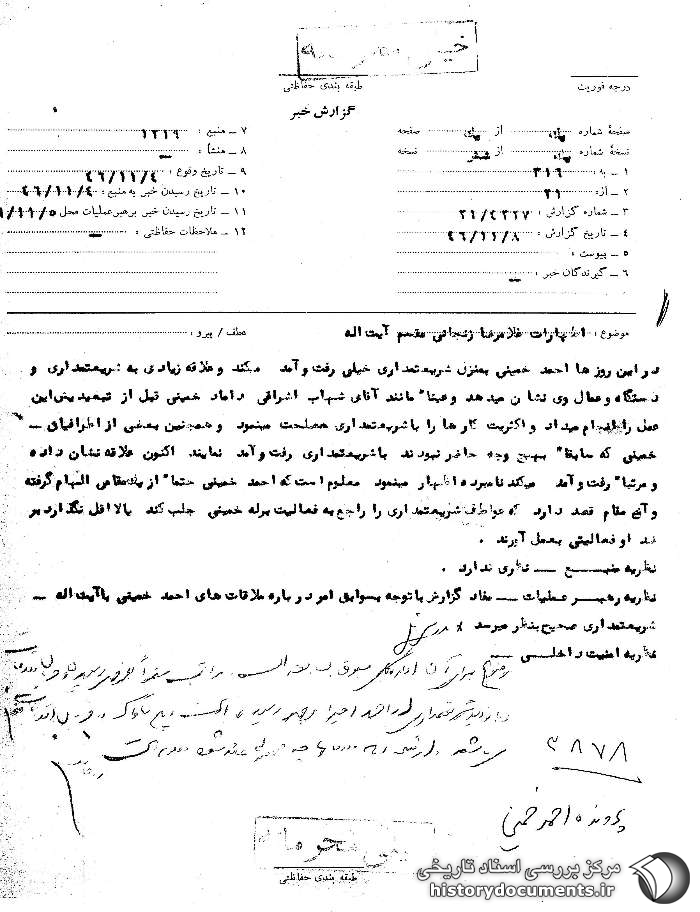 خیلی محرمانه
طبقه بندی حفاظتی
درجه فوریت
گزارش خبر
صفحهٔ شماره یک از یک صفحه
نسخهٔ شماره یک از نسخه
۱ ـ به: ۳۱۶
۲ ـ از: ۲۱
۳ ـ شماره گزارش: ۲۱/۴۳۲۷
۴ ـ تاریخ گزارش: ۴۶/۱۱/۸
۵ ـ پیوست:
۶ ـ گیرندگان خبر: ـ
۷ ـ منبع: ۱۳۱۹
۸ ـ منشأ: ـ
۹ ـ تاریخ وقوع: ۴۶/۱۱/۴
۱۰ ـ تاریخ رسیدن خبر به منبع: ۴۶/۱۱/۴
۱۱ ـ تاریخ رسیدن خبر برهبر عملیات محل ۱۱/۵
۱۲ ـ ملاحظات حفاظتی: ـ
موضوع: اظهارات غلامرضا زنجانی مقسم آیت اله
عطف / پیرو:
در این روزها احمد خمینی بمنزل شریعتمداری خیلی رفت و آمد میکند و علاقه زیادی به شریعتمداری و
دستگاه و عمال وی نشان میدهد و عینا" مانند آقای شهاب اشراقی داماد خمینی قبل از تبعیدیش این
عمل را انجام میداد و اکثریت کارها را با شریعتمداری مصلحت مینمود و همچنین بعضی از اطرافیان ـ
خمینی که سابقا" بهیچ وجه حاضر نبودند با شریعتمداری رفت و آمد نمایند اکنون علاقه نشان داده
و مرتبا" رفت و آمد میکند نامبرده اظهار مینمود معلوم است که احمد خمینی حتما" از یک مقامی الهام گرفته
و آن مقام قصد دارد که عواطف شریعتمداری را راجع به فعالیت برله خمینی جلب کند یا لااقل نگذارد بر
ضد او فعالیتی بعمل آورند .
نظریه منبع ـ نظری ندارد .
نظریه رهبر عملیات ـ مفاد گزارش با توجه بسوابق امر درباره ملاقات های احمد خمینی با آیت اله ـ
شریعتمداری صحیح بنظر میرسد
نظریه امنیت داخلی ـ
۳۸۷۸
پرونده احمد خمینی
خیلی محرمانه
طبقه بندی حفاظتی
مرکز بررسی اسناد تاریخی
historydocuments.ir